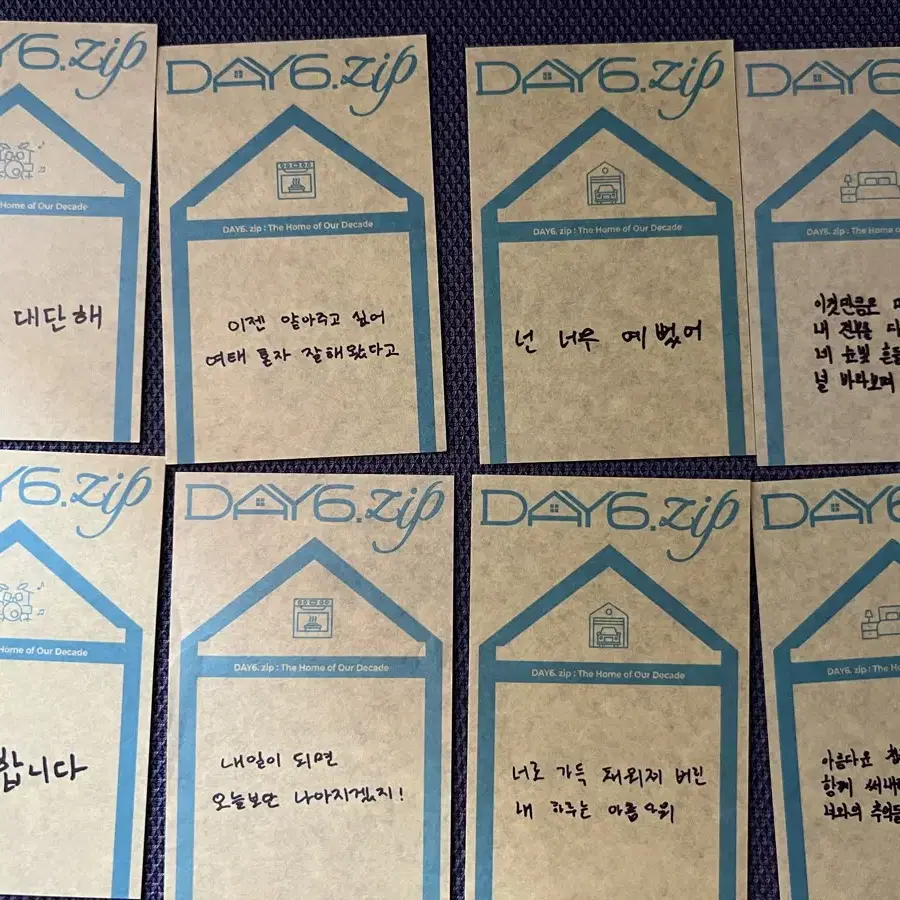 AY6.zip
Home of Our Decade
대단해
DAY6.zip
DAY6. zip : The Home of Our Decade
이젠 알아주고 싶어
여태 혼자 잘해왔다고
DAY6.zip
DAY6. zip : The Home of Our Decade
넌 너무 예뻤어
DAY6
DAY6. zip : The Home o
이것만큼은
내 전부를 다
네 눈빛
널 바라보며
Y6.zip
Home of Our Decade
합니다
DAY6.zip
DAY6. zip : The Home of Our Decade
내일이 되면
오늘보단 나아지겠지!
DAY6.zip
DAY6. zip : The Home of Our Decade
너로 가득 채워져 버린
내 하루는 아름다워
DAY6
DAY6. zip : The H
아름다운
함께 써내
너와의 추억들